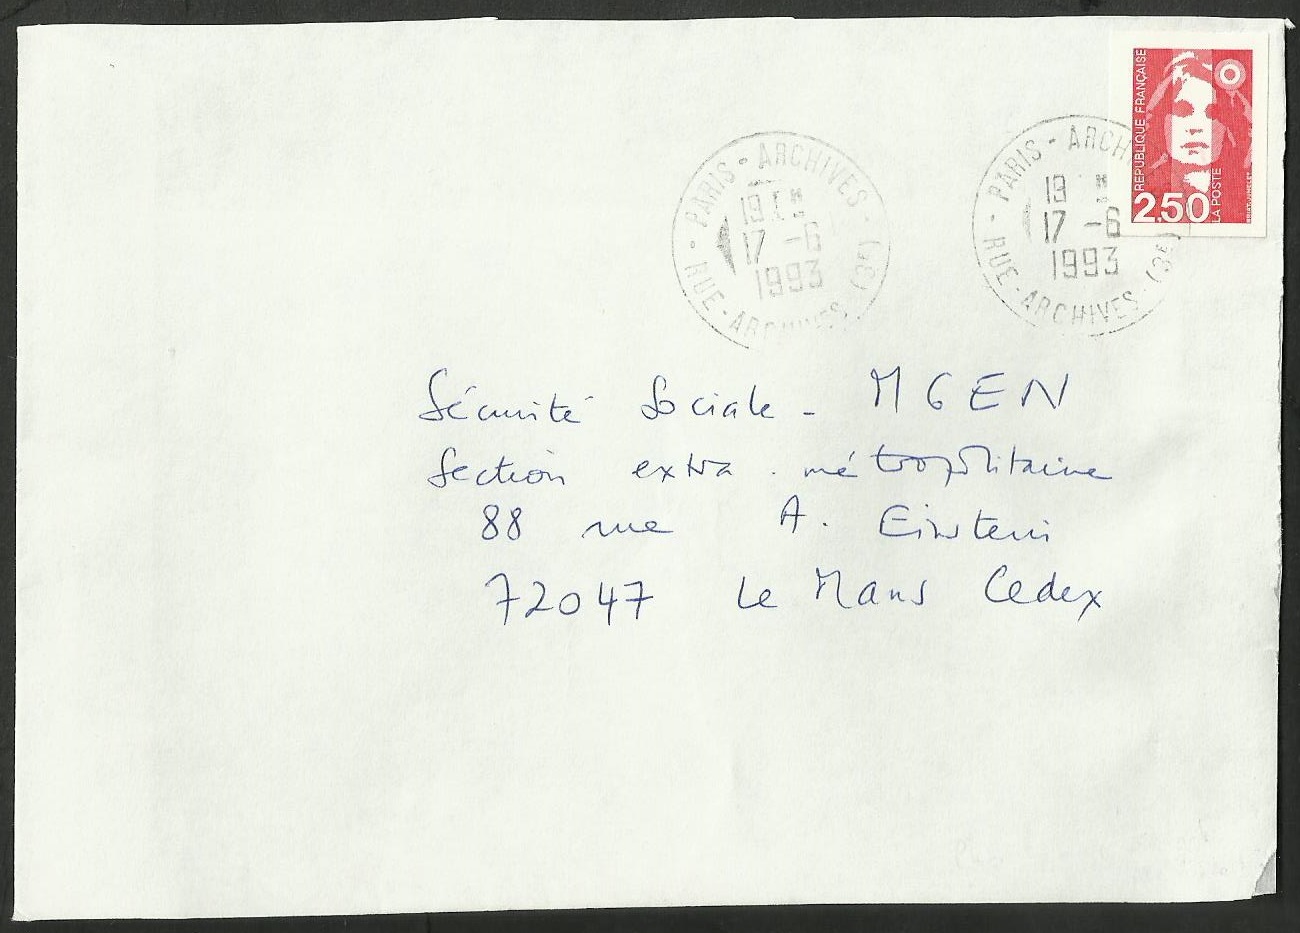 RÉPUBLIQUE FRANÇAISE
2,50
LA POSTE
PARIS - ARCHIVES - (3E)
RUE - ARCHIVES
19 H
17 -6
1993
PARIS - ARCH
RUE - ARCHIVES - (3E)
19 H
17 -6
1993
Sécurité Sociale - MGEN
Section extra. métropolitaine
88 rue A. Einstein
72047 Le Mans Cedex